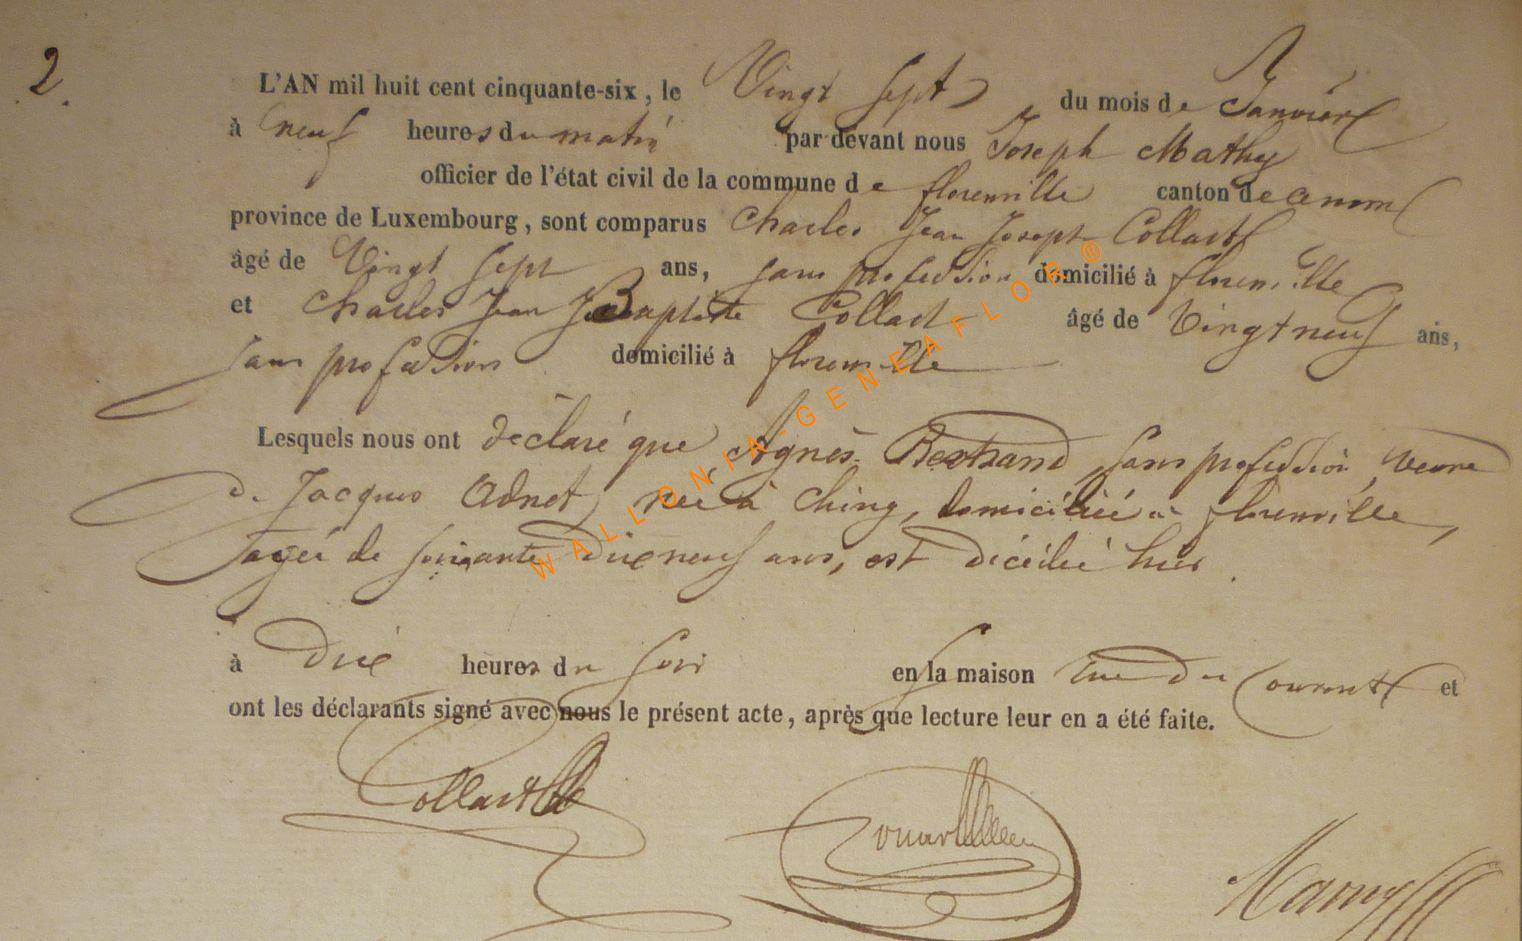 2.
L'AN mil huit cent cinquante-six, le Vingt Sept du mois de Janvier
à neuf heures du matin par devant nous Joseph Mathy
officier de l'état civil de la commune de florenville canton de
province de Luxembourg, sont comparus Charles Jean Joseph Collart
âgé de Vingt Sept ans, sans profession domicilié à florenville
et Charles Jean Baptiste Collart âgé de Vingt neuf ans,
sans profession domicilié à florenville
Lesquels nous ont déclaré que Agnès Bertrand, sans profession, veuve
de Jacques Adnet, née à Chiny, domiciliée à florenville,
agée de soixante dix neuf ans, est décédée hier
à Dix heures du soir en la maison rue du et
ont les déclarants signé avec nous le présent acte, après que lecture leur en a été faite.
Collart
WALLONIA-GENEAFLOR®